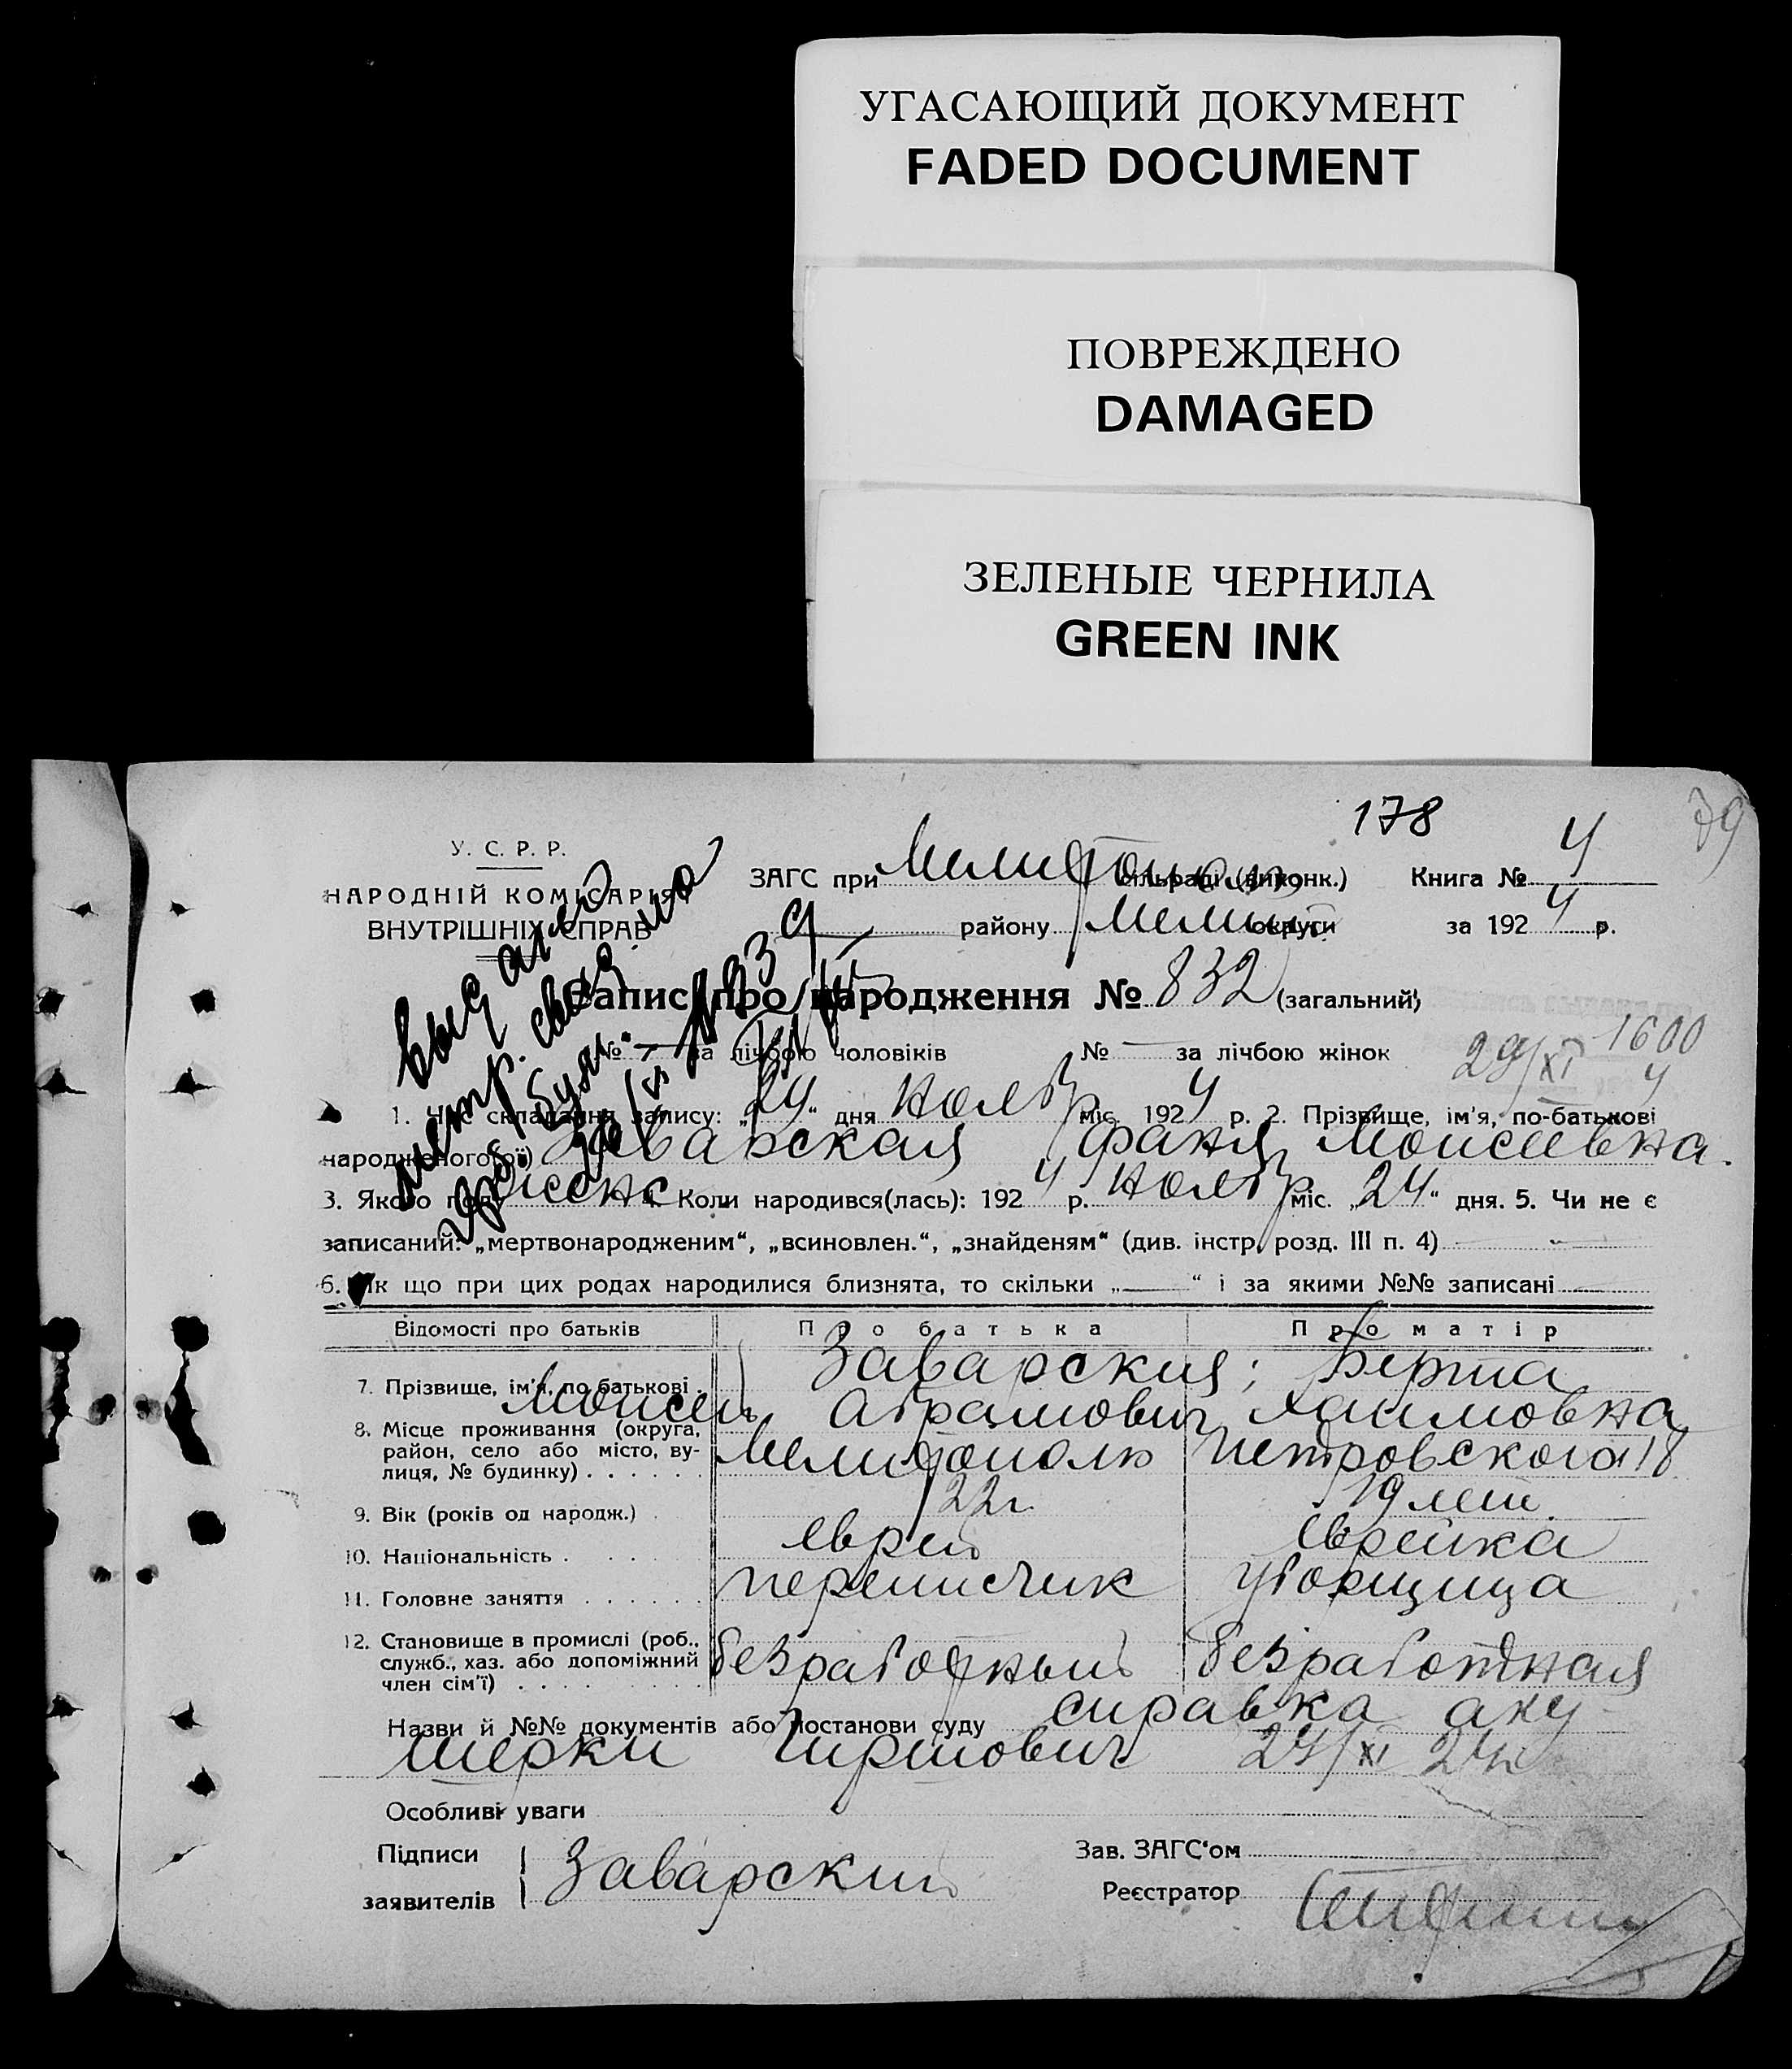 УГАСАЮЩИЙ ДОКУМЕНТ
FADED DOCUMENT
ПОВРЕЖДЕНО
DAMAGED
ЗЕЛЕНЫЕ ЧЕРНИЛА
GREEN INK
178
79
У. С. Р. Р.
НАРОДНІЙ КОМІСАРІЯТ
ВНУТРІШНІХ СПРАВ
ЗАГС при сільраді (виконк.) Книга № 4
району Мелит округи за 1924 р.
Запис про народження № 832 (загальний)
№ — за лічбою чоловіків № — за лічбою жінок
29/XI 1600
4
1. Час складання запису: „24“ дня нояб міс. 1924 р. 2. Прізвище, ім'я, по-батькові
народженого(ої) Заварская Фаня Моисеевна.
3. Якого полу женс 4. Коли народився(лась): 1924 р. нояб міс. „24“ дня. 5. Чи не є
записаний: „мертвонародженим“, „всиновлен.“, „знайденям“ (див. інстр. розд. III п. 4)
6. Як що при цих родах народилися близнята, то скільки „—“ і за якими №№ записані
Відомості про батьків Про батька Про матір
7. Прізвище, ім'я, по батькові Заварския; Берта
Моисей Абрамович Хаимовна
8. Місце проживання (округа, район, село або місто, вулиця, № будинку) Мелитополь Петровского 18
9. Вік (років од народж.) 22 г. 19 лет
10. Національність еврей еврейка
11. Головне заняття переписчик уборщица
12. Становище в промислі (роб., служб., хаз. або допоміжний член сім'ї) безработный безработная
Назви й №№ документів або постанови суду справка аку-
шерки Гиршович 24/XI 24 г
Особливі уваги
Підписи
заявителів
Заварский
Зав. ЗАГС'ом
Реєстратор